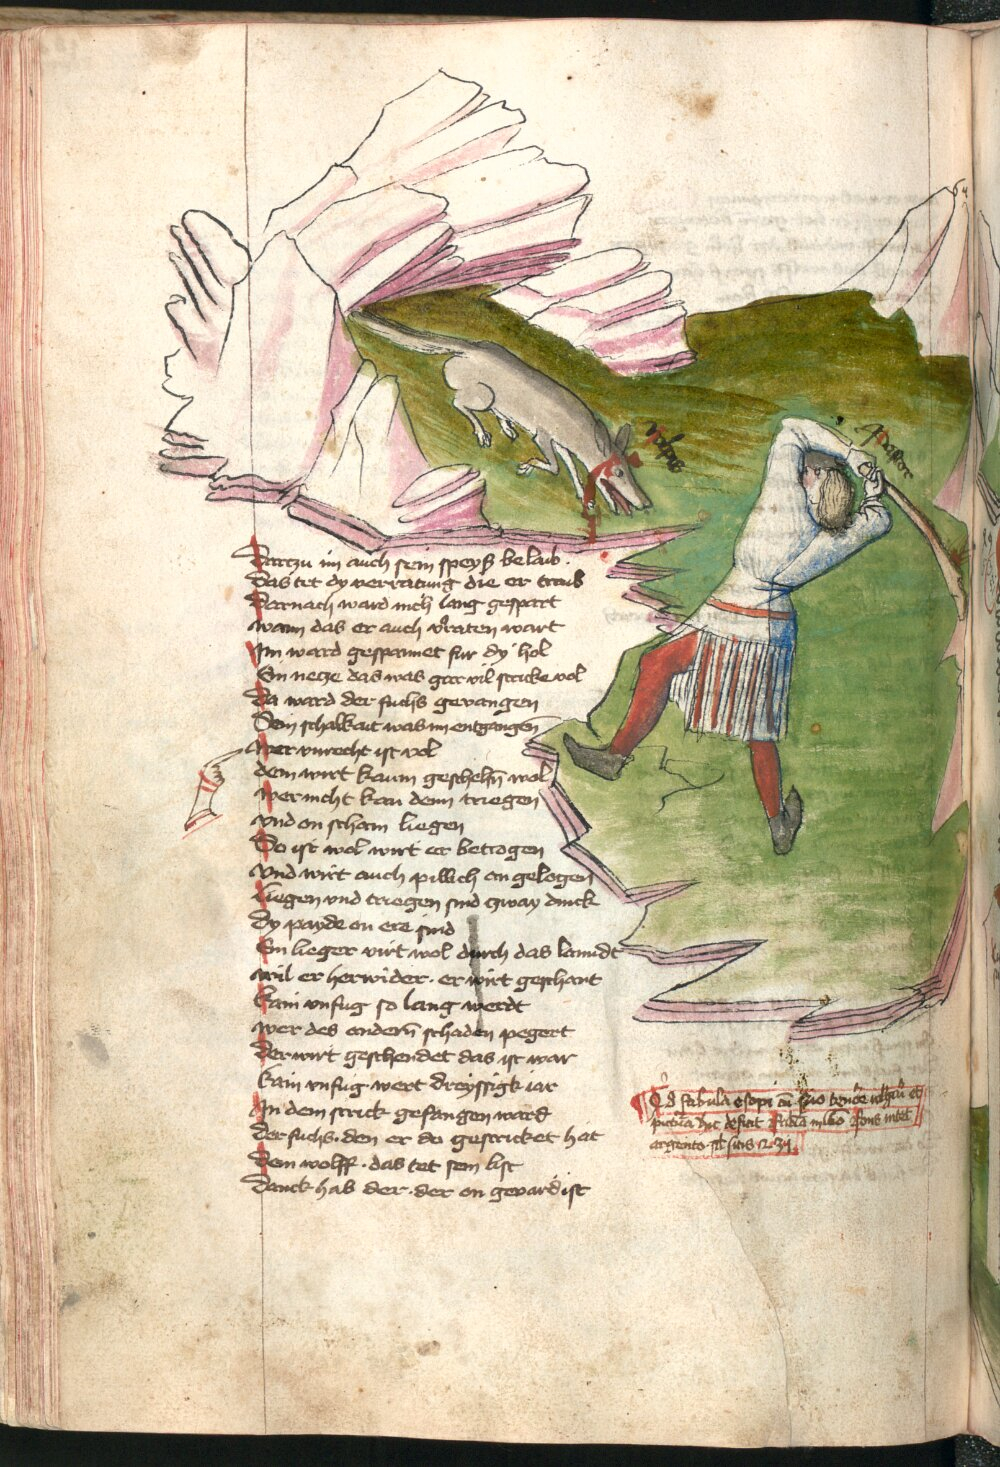 vulpis
pastor
Darczu im auch sein speyß belaib .
Das tet dy verratung die er traib
Darnach ward nicht lang gespart
wann das er auch v'raten wart
Im ward gespannet fur dy hol
Ein necze das was gar vil stricke vol
Da ward der fuchs gevangen
Sein schalkait was im entgangen
wer vnrecht ist vol
dem wirt kaum geschehn wol
wer nicht kan denn triegen
vnd on scham liegen
So ist wol wirt er betrogen
vnd wirt auch pillich an gelogen
Liegen vnd triegen sind czway dinck
dy payde on ere sind
Ein lieger virt wol durch das lanndt
wil er herwider . er wirt geschant
kain vnfug so lang werdt
wer des andern schaden pegert
Der wirt geschendet das ist war
kain vnfug wert dreyssigk iar
In dem strick gefangen ward
Der fuchs . den er do gestricket hat
dem wolff . das tet sein list
Danck hab der . der on gevard ist
fabula esopi
pictura hic deficit fons
argento